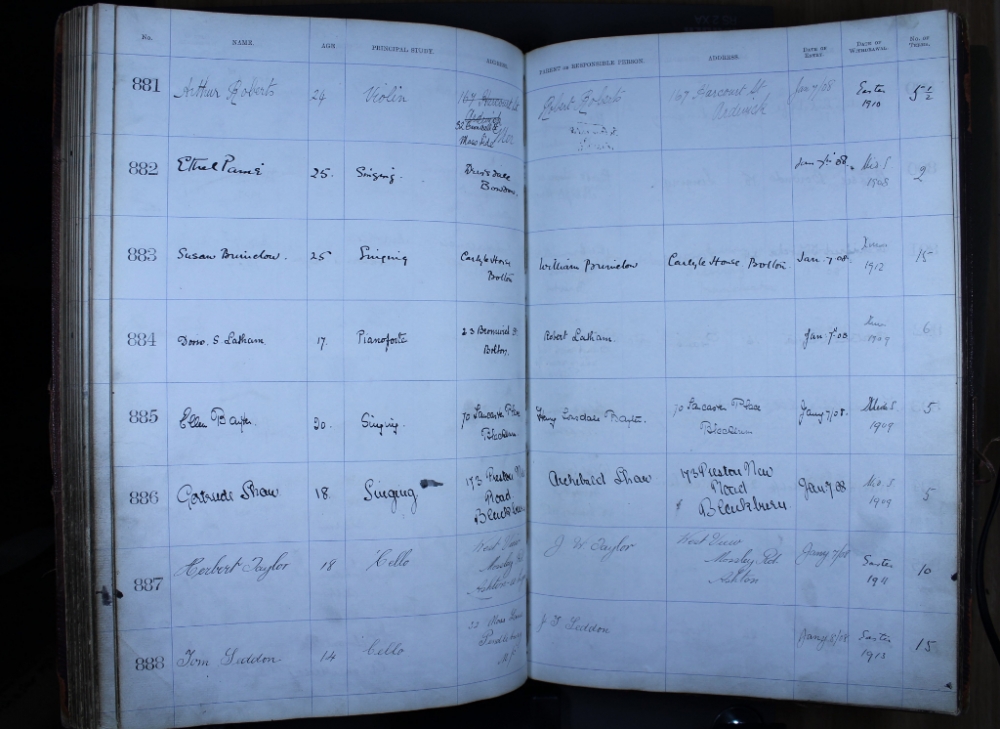 No. NAME. AGE PRINCIPAL STUDY. ADDRESS. PARENT OR RESPONSIBLE PERSON. ADDRESS. DATE OF ENTRY. DATE OF WITHDRAWAL. NO. OF TERMS.
881 Arthur Roberts 24 Violin 167 Harcourt St Robert Roberts 167 Harcourt St Jan 7/08 Easter 5 1/2
Ardwick Ardwick 1910
Moss Side
882 Ethel 25. Singing. Jan 7th 08. Mids 2
Bowdon. 1908
883 Susan 25 Singing Carlyle House William Carlyle House Bolton. Jan. 7. 08. Xmas 15
Bolton 1912
884 S. Latham 17. Pianoforte 23 St Robert Latham. Jan. 7th 08 Xmas 6
Bolton. 1909
885 Ellen Baxter. 20. Singing. 70 Lancaster Place Henry Lonsdale Baxter. 70 Lancaster Place Jany 7/08. Mids 5
Blackburn Blackburn 1909
886 Gertrude Shaw 18. Singing 173 Preston New Archibald Shaw 173 Preston New Jan 7 08 Mids 5
Road Road 1909
Blackburn Blackburn
887 Herbert Taylor 18 'Cello West View J. W. Taylor West View Jany 7/08 Easter 10
Mossley Rd Mossley Rd. 1911
Ashton Ashton
888 Tom Seddon 14 'Cello 22 Moss J. T. Seddon Jany 8/08 Easter 15
Pendlebury 1913